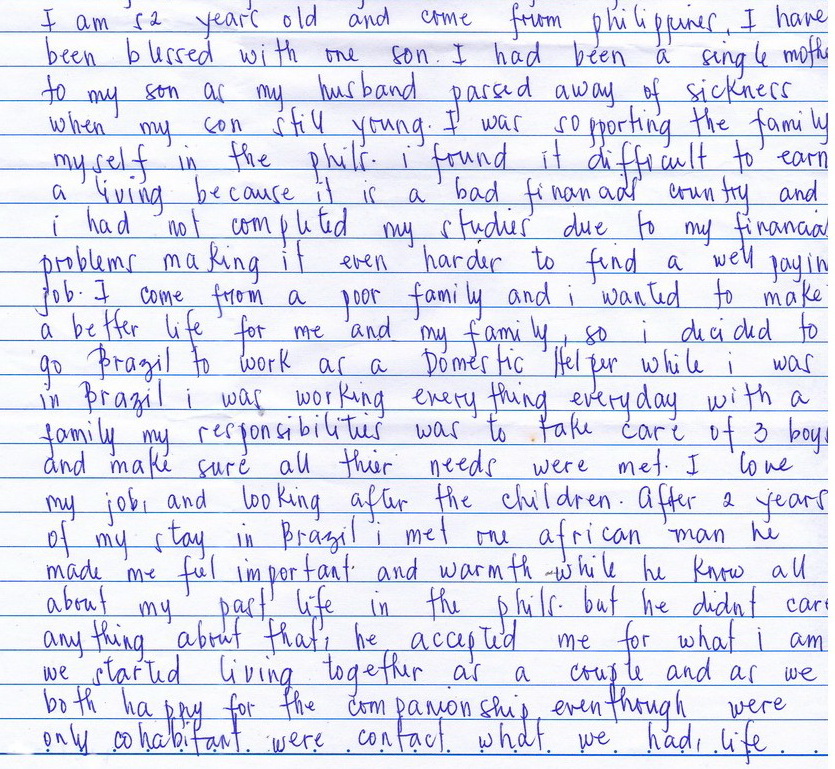 I am 52 years old and come from philippines, I have
been blessed with one son. I had been a single mothe
to my son as my husband passed away of sickness
when my son still young. I was sopporting the family
myself in the phils. i found it difficult to earn
a living because it is a bad finanaal country and
i had not completed my studies due to my financial
problems making it even harder to find a well payin
job. I come from a poor family and i wanted to make
a better life for me and my family, so i decided to
go Brazil to work as a Domestic Helper while i was
in Brazil i was working everything everyday with a
family my responsibilities was to take care of 3 boys
and make sure all thier needs were met. I love
my job, and looking after the children. After 2 years
of my stay in Brazil i met one african man he
made me feel important and warmth while he know all
about my past life in the phils. but he didnt care
anything about that, he accepted me for what i am
we started living together as a couple and as we
both happy for the companionship eventhough were
only cohabitant were contact what we had, life